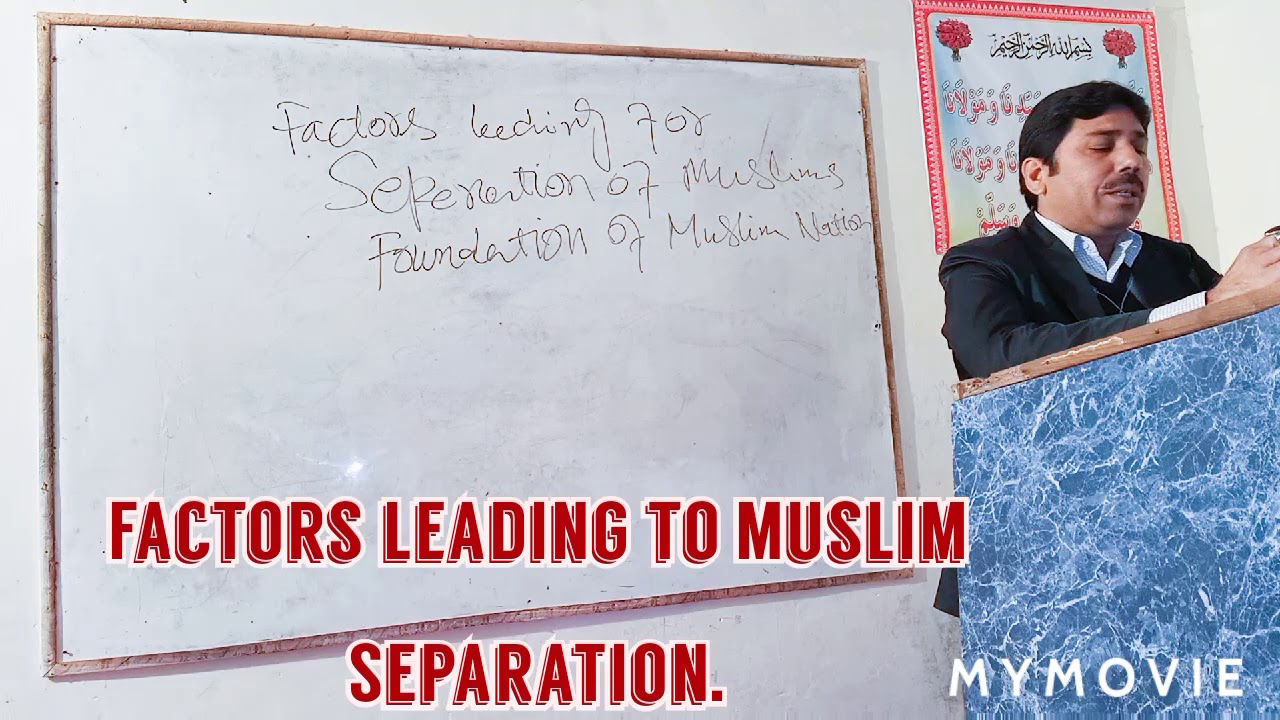 Factors leeding for
Seperation of Muslims
Foundation of Muslim Nation
بسم الله الرحمن الرحيم
سَيِّدِنَا وَمَوْلَانَا
نَا وَمَوْلَانَا
وَسَلِّمْ
FACTORS LEADING TO MUSLIM
SEPARATION.
MYMOVIE